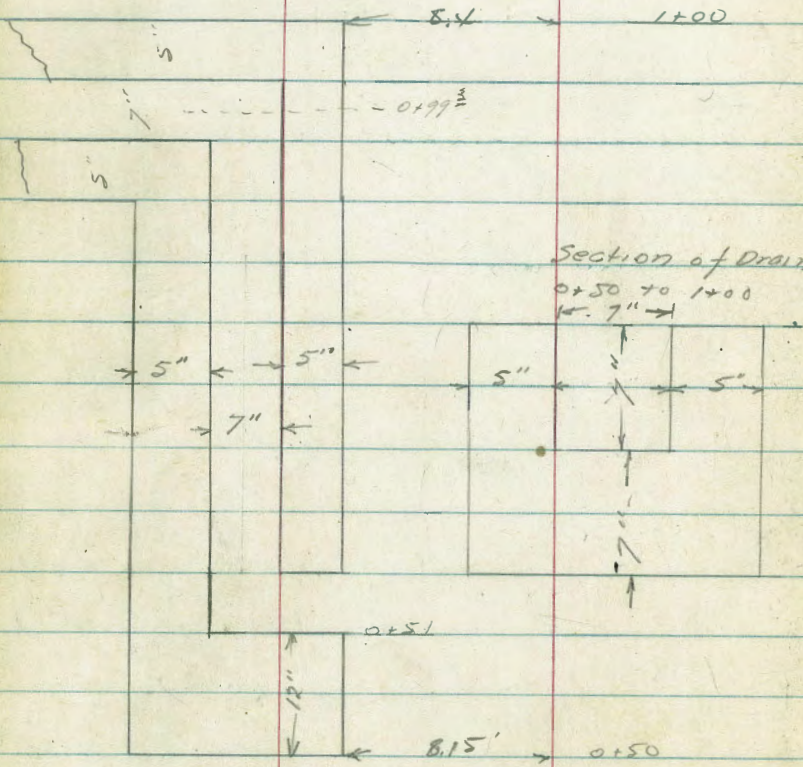 8.4 1+00
5"
7" 0+99³
5"
Section of Drain
0+50 to 1+00
7"
5" 5"' 5" 7" 5"
7"
7"
0+51
12"
8.15' 0+50